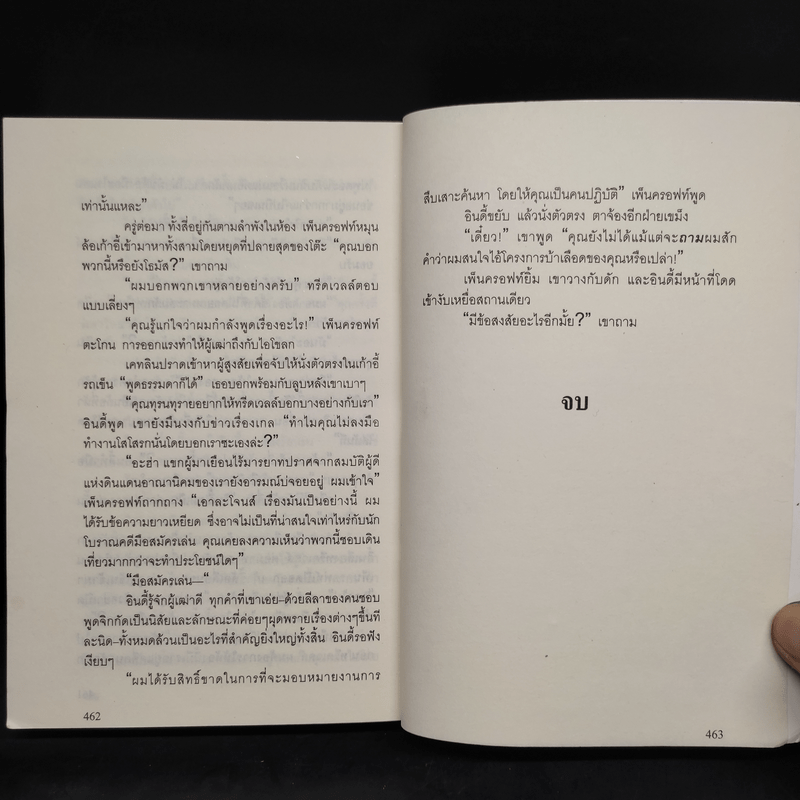 เท่านั้นแหละ”
ครู่ต่อมา ทั้งสี่อยู่กันตามลำพังในห้อง เพ็นครอฟท์หมุน
ล้อเก้าอี้เข้ามาหาทั้งสามโดยหยุดที่ปลายสุดของโต๊ะ “คุณบอก
พวกนี้หรือยังโธมัส?” เขาถาม
“ผมบอกพวกเขาหลายอย่างครับ” ทรีดเวลล์ตอบ
แบบเลี่ยงๆ
“คุณรู้แก่ใจว่าผมกำลังพูดเรื่องอะไร!” เพ็นครอฟท์
ตะโกน การออกแรงทำให้ผู้เฒ่าถึงกับไอโขลก
เคทลินปราดเข้าหาผู้สูงสัยเพื่อจับให้นั่งตัวตรงในเก้าอี้
รถเข็น “พูดธรรมดาก็ได้” เธอบอกพร้อมกับลูบหลังเขาเบาๆ
“คุณทุรนทุรายอยากให้ทรีดเวลล์บอกบางอย่างกับเรา”
อินดี้พูด เขายังมึนงงกับข่าวเรื่องเกล “ทำไมคุณไม่ลงมือ
ทำงานโสโสรกนั่นโดยบอกเราซะเองล่ะ?”
“อะฮ่า แขกผู้มาเยือนไร้มารยาทปราศจากสมบัติผู้ดี
แห่งดินแดนอาณานิคมของเรายังอารมณ์บ่จอยอยู่ ผมเข้าใจ”
เพ็นครอฟท์ถากถาง “เอาละโจนส์ เรื่องมันเป็นอย่างนี้ ผม
ได้รับข้อความยาวเหยียด ซึ่งอาจไม่เป็นที่น่าสนใจเท่าไหร่กับนัก
โบราณคดีมือสมัครเล่น คุณเคยลงความเห็นว่าพวกนี้ชอบเดิน
เที่ยวมากกว่าจะทำประโยชน์ใดๆ”
“มือสมัครเล่น—“
อินดี้รู้จักผู้เฒ่าดี ทุกคำที่เขาเอ่ย-ด้วยลีลาของคนชอบ
พูดจิกกัดเป็นนิสัยและลักษณะที่ค่อยๆผุดพรายเรื่องต่างๆขึ้นที
ละนิด-ทั้งหมดล้วนเป็นอะไรที่สำคัญยิ่งใหญ่ทั้งสิ้น อินดี้รอฟัง
เงียบๆ
“ผมได้รับสิทธิ์ขาดในการที่จะมอบหมายงานการ
462
สืบเสาะค้นหา โดยให้คุณเป็นคนปฏิบัติ” เพ็นครอฟท์พูด
อินดี้ขยับ แล้วนั่งตัวตรง ตาจ้องอีกฝ่ายเขม็ง
“เดี๋ยว!” เขาพูด “คุณยังไม่ได้แม้แต่จะถามผมสัก
คำว่าผมสนใจไอ้โครงการบ้าเลือดของคุณหรือเปล่า!”
เพ็นครอฟท์ยิ้ม เขาวางกับดัก และอินดี้มีหน้าที่โดด
เข้างับเหยื่อสถานเดียว
“มีข้อสงสัยอะไรอีกมั้ย?” เขาถาม
จบ
463